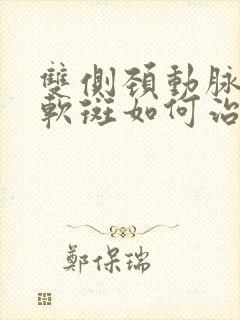 雙側頚動脉
軟斑如何治
鄭保瑞